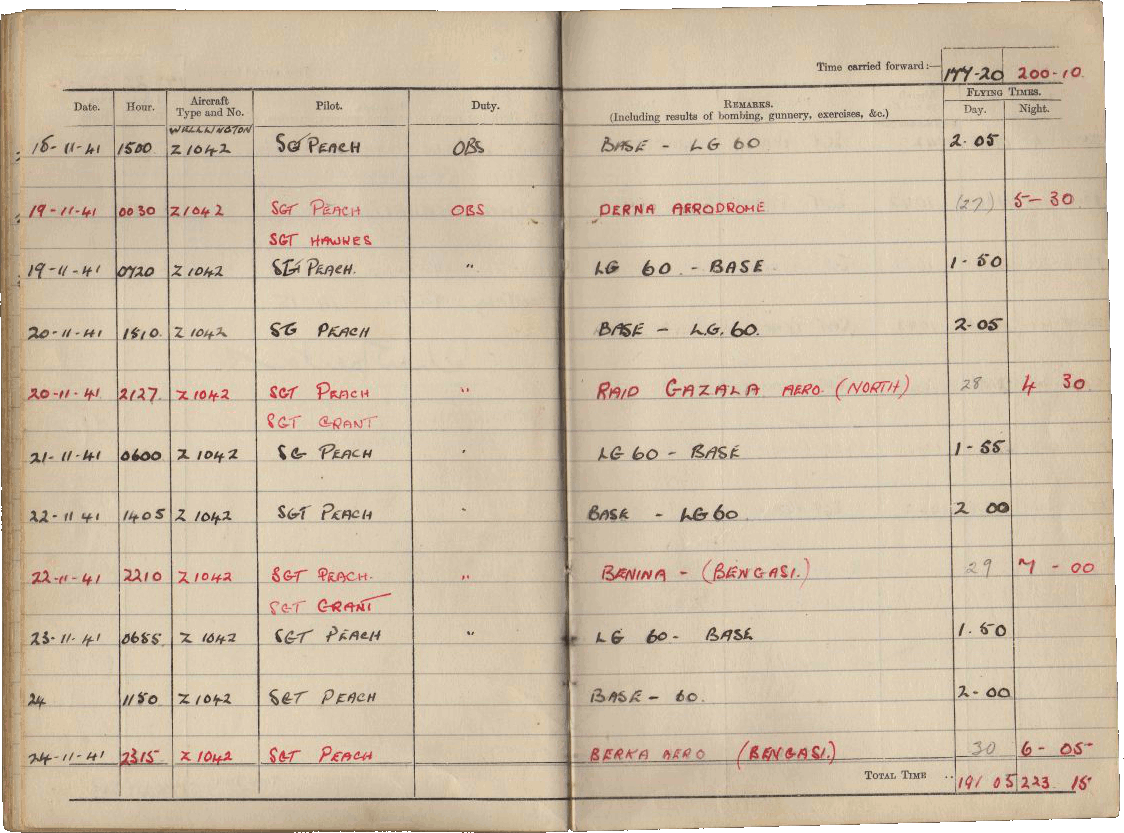 Time carried forward:— 177-20 200-10.
Date. Hour. Aircraft Type and No. Pilot. Duty. REMARKS. (Including results of bombing, gunnery, exercises, &c.) FLYING TIMES. Day. Night.
WELLINGTON
18-11-41 1500 Z1042 SG PEACH OBS BASE - LG 60 2.05
19-11-41 0030 Z1042 SGT PEACH OBS DERNA AERODROME (27) 5-30
SGT HAWKES
19-11-41 0720 Z1042 SGT PEACH. " LG 60 - BASE 1-50
20-11-41 1510 Z1042 SG PEACH BASE - L.G. 60. 2-05
20-11-41 2127 Z1042 SGT PEACH " RAID GAZALA AERO. (NORTH) 28 4 30
SGT GRANT
21-11-41 0600 Z1042 SG PEACH " LG 60 - BASE 1-55
22-11 41 1405 Z1042 SGT PEACH " BASE - LG 60 2 00
22-11-41 2210 Z1042 SGT PEACH- " BENINA - (BENGASI.) 29 7-00
SGT GRANT
23-11-41 0655 Z1042 SGT PEACH " LG 60 - BASE 1.50
24 1150 Z1042 SGT PEACH BASE - 60. 2-00
24-11-41 2315 Z1042 SGT PEACH BERKA AERO (BENGASI.) 30 6-05
TOTAL TIME .. 191 05 223 15